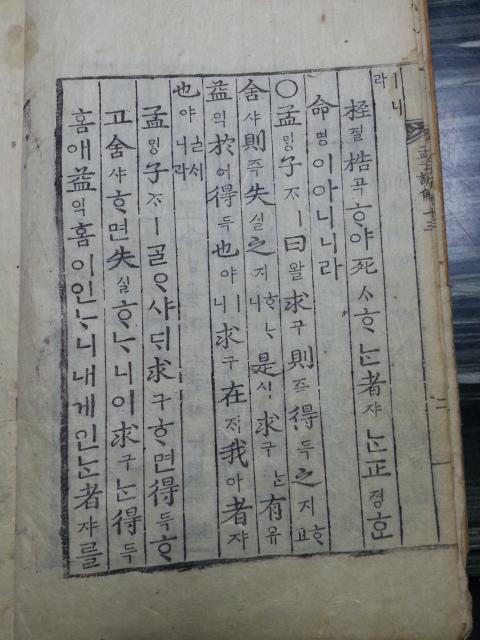 ㅣ니라
桎질梏곡ᄒᆞ야死ᄉᆞᄒᆞᄂᆞᆫ者쟈ᄂᆞᆫ正졍ᄒᆞᆫ
命명이아니니라
○孟ᄆᆡᆼ子ᄌᆞㅣ曰왈求구則즉得득之지ᄒᆞ고
舍샤則즉失실之지ᄒᆞᄂᆞ니是시求구ᄂᆞᆫ有유
益익於어得득也야ㅣ니求구在ᄌᆡ我아者쟈
也야ㅣᆯᄉᆡ니라
孟ᄆᆡᆼ子ᄌᆞㅣᄀᆞᆯᄋᆞ샤ᄃᆡ求구ᄒᆞ면得득ᄒᆞ
고舍샤ᄒᆞ면失실ᄒᆞᄂᆞ니이求구ᄂᆞᆫ得득
홈애益익홈이인ᄂᆞ니내게인ᄂᆞᆫ者쟈를